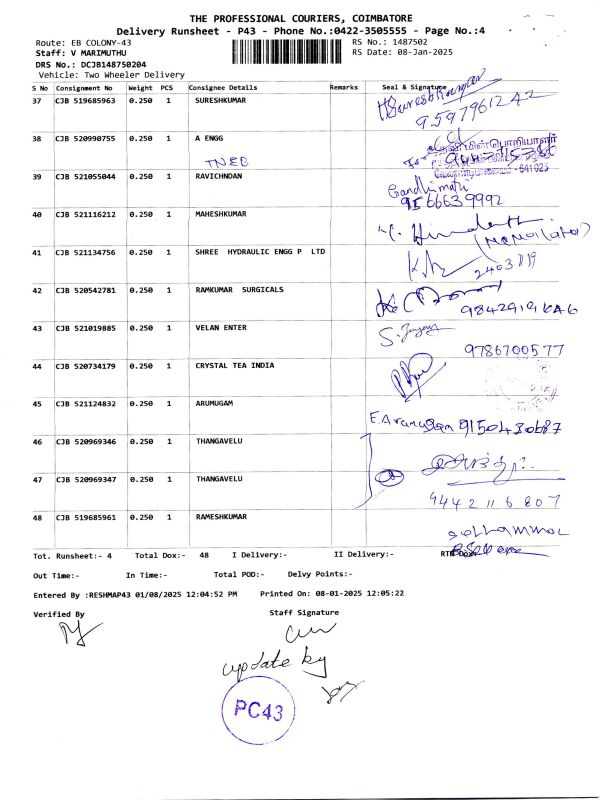 THE PROFESSIONAL COURIERS, COIMBATORE
Delivery Runsheet - P43 - Phone No.:0422-3505555 - Page No.:4
Route: EB COLONY-43 RS No.: 1487502
Staff: V MARIMUTHU RS Date: 08-Jan-2025
DRS No.: DCJB148750204
Vehicle: Two Wheeler Delivery
S No Consignment No Weight PCS Consignee Details Remarks Seal & Signature
37 CJB 519685963 0.250 1 SURESHKUMAR
9597961242
38 CJB 520990755 0.250 1 A ENGG
TNEB
39 CJB 521055044 0.250 1 RAVICHNDAN
Gandhimathi
9566639992
40 CJB 521116212 0.250 1 MAHESHKUMAR
41 CJB 521134756 0.250 1 SHREE HYDRAULIC ENGG P LTD
42 CJB 520542781 0.250 1 RAMKUMAR SURGICALS
43 CJB 521019885 0.250 1 VELAN ENTER
9786700577
44 CJB 520734179 0.250 1 CRYSTAL TEA INDIA
45 CJB 521124832 0.250 1 ARUMUGAM
46 CJB 520969346 0.250 1 THANGAVELU
47 CJB 520969347 0.250 1 THANGAVELU
9442116807
48 CJB 519685961 0.250 1 RAMESHKUMAR
Tot. Runsheet:- 4 Total Dox:- 48 I Delivery:- II Delivery:-
Out Time:- In Time:- Total POD:- Delvy Points:-
Entered By :RESHMAP43 01/08/2025 12:04:52 PM Printed On: 08-01-2025 12:05:22
Verified By Staff Signature
update by
PC43